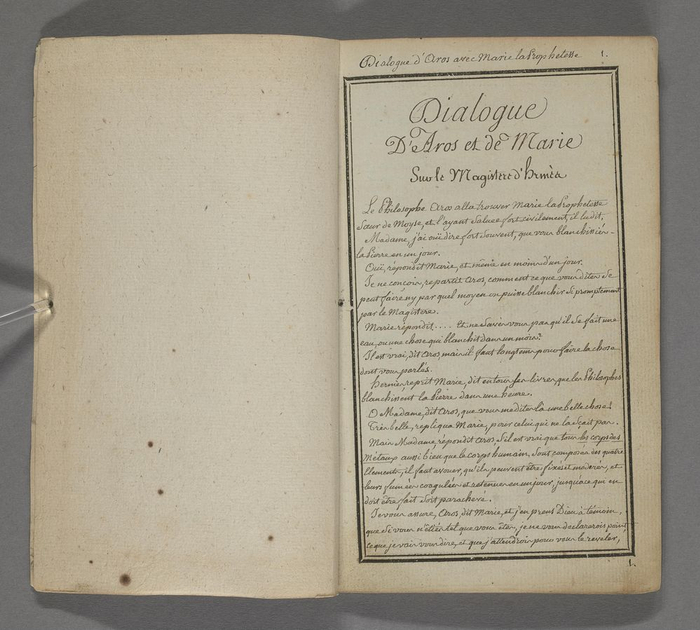 Dialogue d'Aros avec Marie la Prophetesse 1.
Dialogue
D'Aros et de Marie
Sur le Magistere d'hermès
Le Philosophe Aros alla trouver Marie la Prophetesse
Sœur de Moyse, et l'ayant Saluee fort civilement, il lui dit,
Madame, j'ai oüi dire fort Souvent, que vous blanchissiés
la Pierre en un jour.
Oüi, répondit Marie, et même en moins d'un jour.
Je ne conçois, repartit Aros, comment ce que vous dites Se
peut faire ny par quel moyen on puisse blanchir Si promptement
par le Magistere.
Marie répondit.... Et ne Savés vous pas qu'il Se fait une
eau, ou une chose qui blanchit dans un mois?
Il est vrai, dit Aros, mais il faut longtems pour faire la chose
dont vous parlés.
hermes reprit Marie, dit en tous Ses livres, que les Philosophes
blanchissent la Pierre dans une heure.
O Madame, dit Aros, que vous me dites là une belle chose!
Très belle, repliqua Marie, pour celui qui ne la Sçait pas.
Mais Madame, répondit Aros, S'il est vrai que tous les corps des
Métaux aussi bien que le corps humain, Sont composés des quatre
Elements, il faut avouer, qu'ils peuvent être fixés et moderés, et
leurs fumées coagulées et retenues en un jour, jusqu'à ce que
doit être fait Soit parachevé.
Je vous assure, Aros, dit Marie, et j'en prens Dieu à témoin,
que Si vous n'étiés tel que vous êtes, je ne vous declarerois point
ce que je vais vous dire, et que j'attendrois pour vous le reveler,
1.